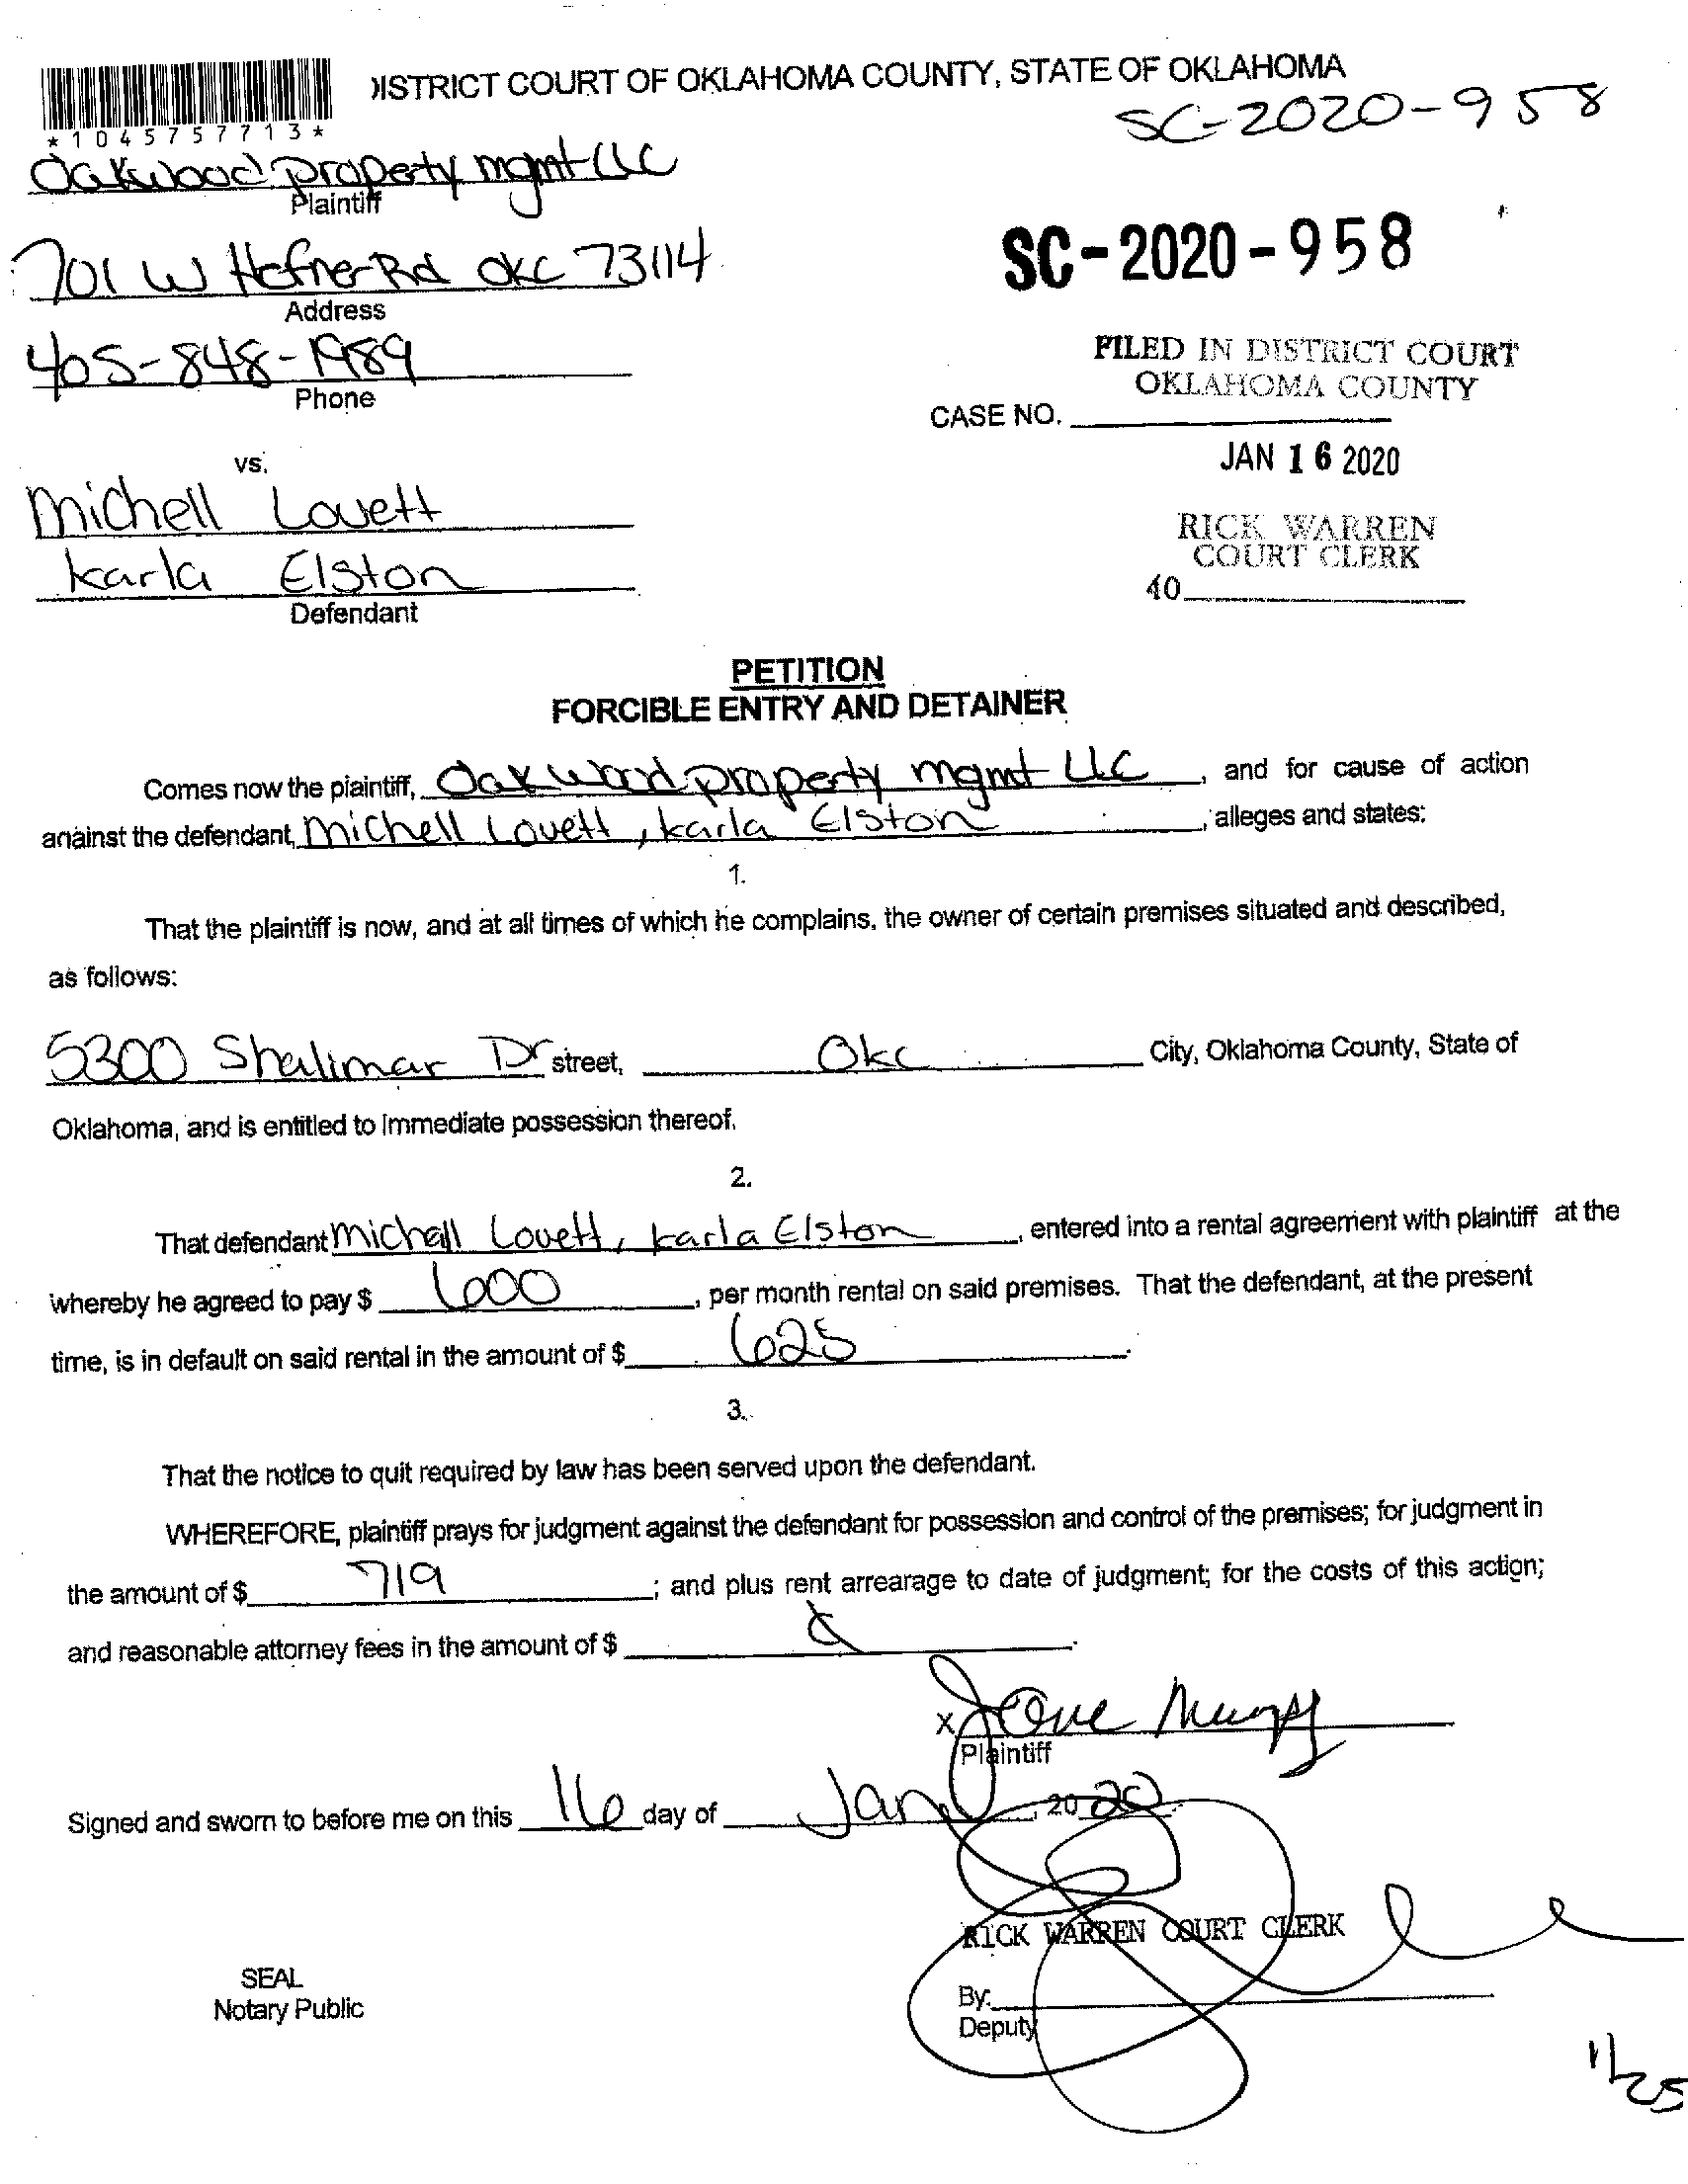 DISTRICT COURT OF OKLAHOMA COUNTY, STATE OF OKLAHOMA
*1045757713*
SC-2020-958
Oakwood property mgmt LLC
Plaintiff
701 W Hefner Rd OKC 73114
Address
SC-2020-958
405-848-1989
Phone
FILED IN DISTRICT COURT
OKLAHOMA COUNTY
CASE NO.
JAN 16 2020
vs.
Michell Lovett
Karla Elston
Defendant
RICK WARREN
COURT CLERK
40
PETITION
FORCIBLE ENTRY AND DETAINER
Comes now the plaintiff, Oakwood property mgmt LLC, and for cause of action
against the defendant, Michell Lovett, Karla Elston, alleges and states:
1.
That the plaintiff is now, and at all times of which he complains, the owner of certain premises situated and described,
as follows:
5300 Shalimar Dr street, Okc City, Oklahoma County, State of
Oklahoma, and is entitled to immediate possession thereof.
2.
That defendant Michell Lovett, Karla Elston, entered into a rental agreement with plaintiff at the
whereby he agreed to pay $ 600, per month rental on said premises. That the defendant, at the present
time, is in default on said rental in the amount of $ 625.
3.
That the notice to quit required by law has been served upon the defendant.
WHEREFORE, plaintiff prays for judgment against the defendant for possession and control of the premises; for judgment in
the amount of $ 719; and plus rent arrearage to date of judgment; for the costs of this action;
and reasonable attorney fees in the amount of $
X
Plaintiff
Signed and sworn to before me on this 16 day of Jan, 2020
RICK WARREN COURT CLERK
SEAL
Notary Public
By:
Deputy